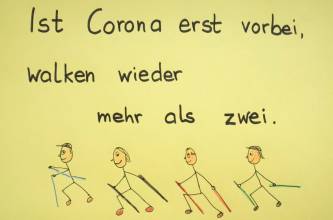 Ist Corona erst vorbei,
walken wieder
mehr als zwei.